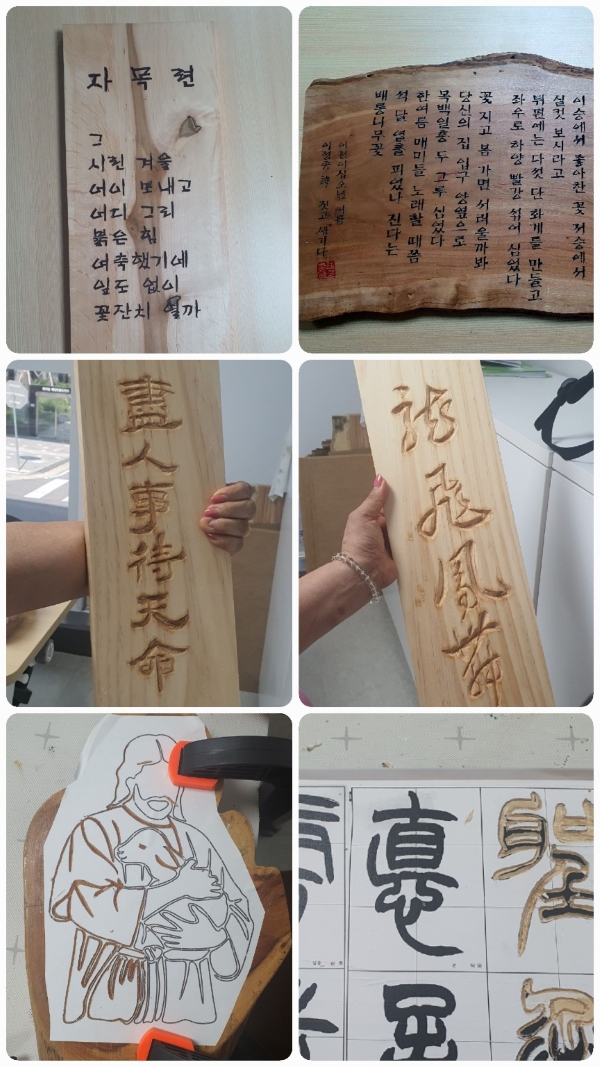 자 목 련
그
시린 겨울
어이 보내고
어디 그리
붉은 힘
여축했기에
잎도 없이
꽃잔치 열까
이승에서 좋아한 꽃 저승에서
실컷 보시라고
뒤편에는 다섯 단 화계를 만들고
좌우로 하양 빨강 섞어 심었다
꽃 지고 봄 가면 서러울까봐
당신의 집 입구 양옆으로
목백일홍 두 그루 심었다
한여름 매미들 노래할 때쯤
석 달 열흘 피었다 진다는
배롱나무꽃
이천이십오년 여름
짓고 새기다
盡人事待天命
龍飛鳳舞
悳 聖